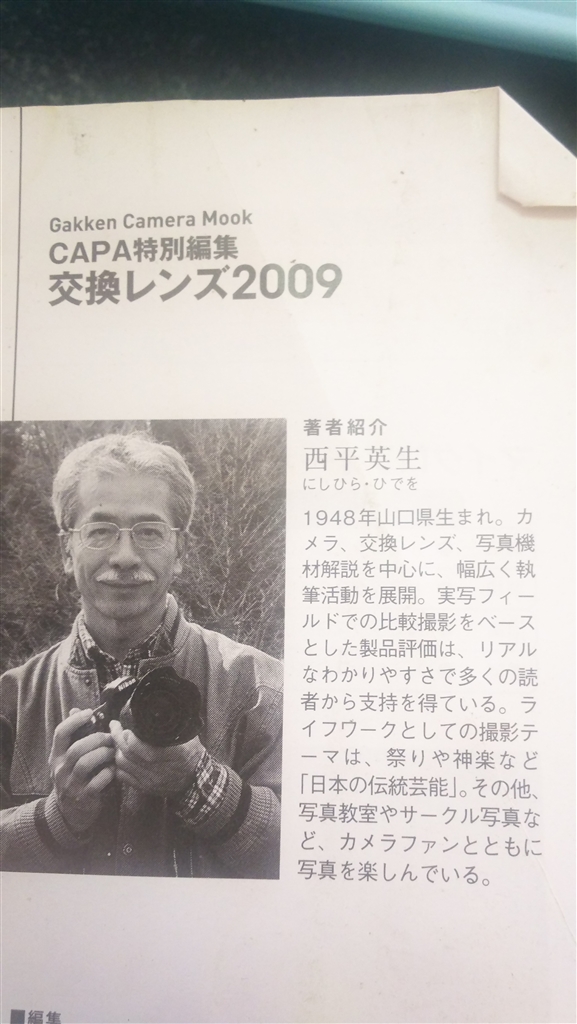 Gakken Camera Mook
CAPA特別編集
交換レンズ2009
著者紹介
西平英生
にしひら・ひでを
1948年山口県生まれ。カ
メラ、交換レンズ、写真機
材解説を中心に、幅広く執
筆活動を展開。実写フィー
ルドでの比較撮影をベース
とした製品評価は、リアル
なわかりやすさで多くの読
者から支持を得ている。ラ
イフワークとしての撮影テ
ーマは、祭りや神楽など
「日本の伝統芸能」。その他、
写真教室やサークル写真な
ど、カメラファンとともに
写真を楽しんでいる。
Nikon
■編集